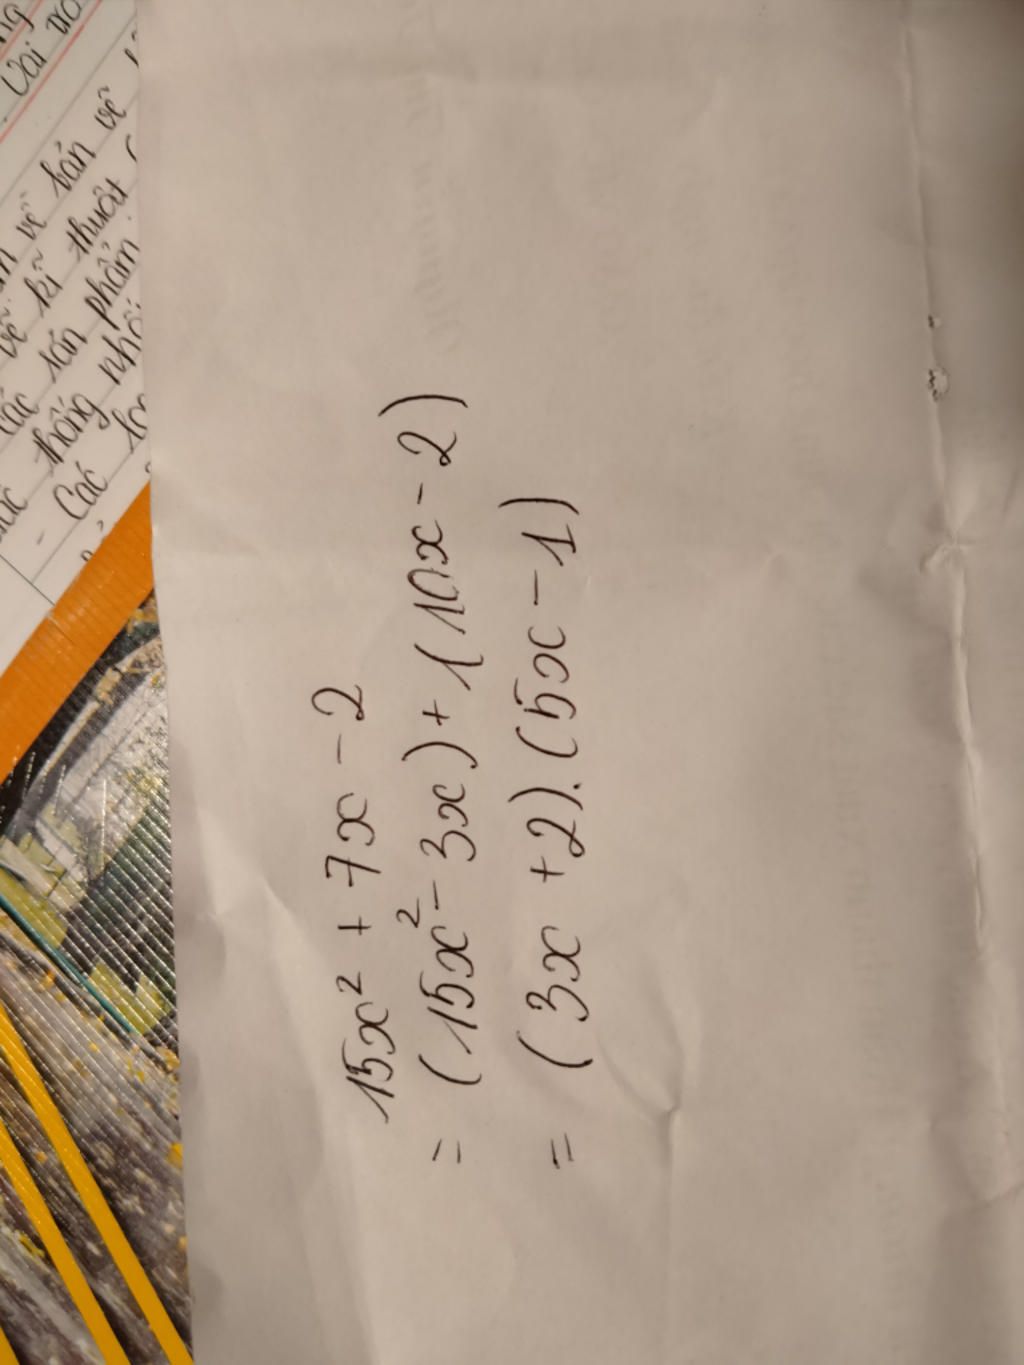 15x² + 7x - 2
= (15x² - 3x) + (10x - 2)
= (3x + 2).(5x - 1)
ng
Vai trò
vẽ bản vẽ
vẽ kĩ thuật
các sản phẩm
thống nhấ
- Các